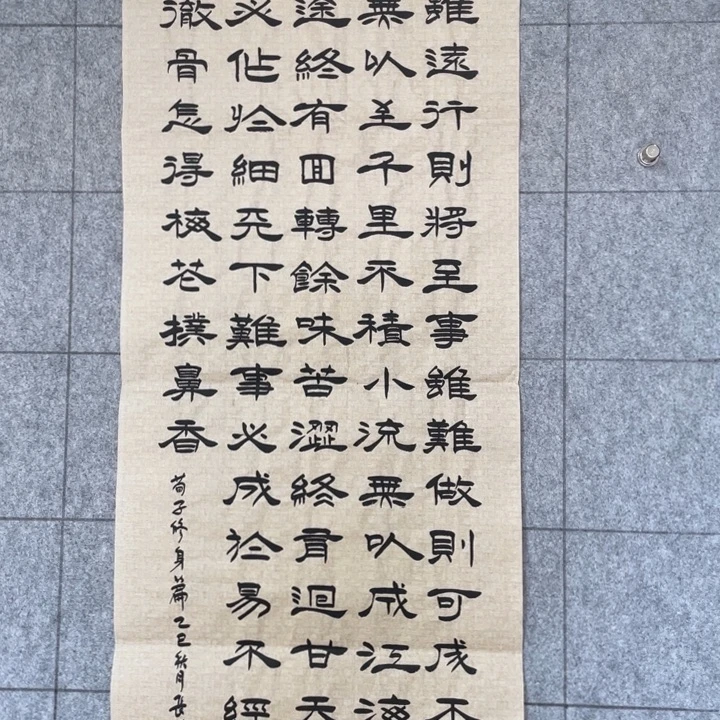 雖遠行則將至事雖難做則可成不
無以至千里不積小流無以成江海
途終有回轉餘味苦澀終有迴甘天
必作於細天下難事必成於易不經
徹骨怎得梅花撲鼻香
荀子修身篇乙巳秋月長